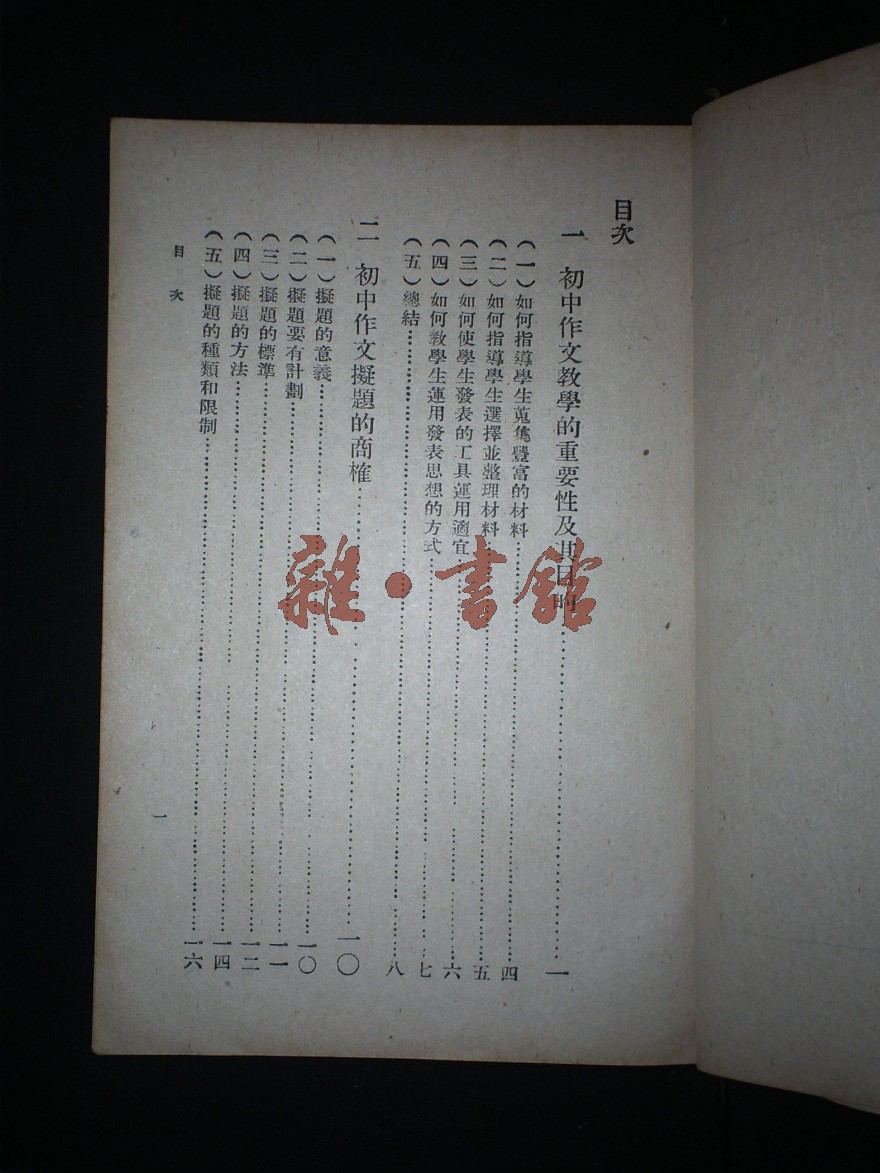 目次
一 初中作文教學的重要性及其目的……一
(一)如何指導學生蒐集豐富的材料……四
(二)如何指導學生選擇並整理材料……五
(三)如何使學生發表的工具運用適宜……六
(四)如何教學生運用發表思想的方式……七
(五)總結……八
二 初中作文擬題的商榷……一〇
(一)擬題的意義……一〇
(二)擬題要有計劃……一一
(三)擬題的標準……一二
(四)擬題的方法……一四
(五)擬題的種類和限制……一六
目次
一
雜·書館